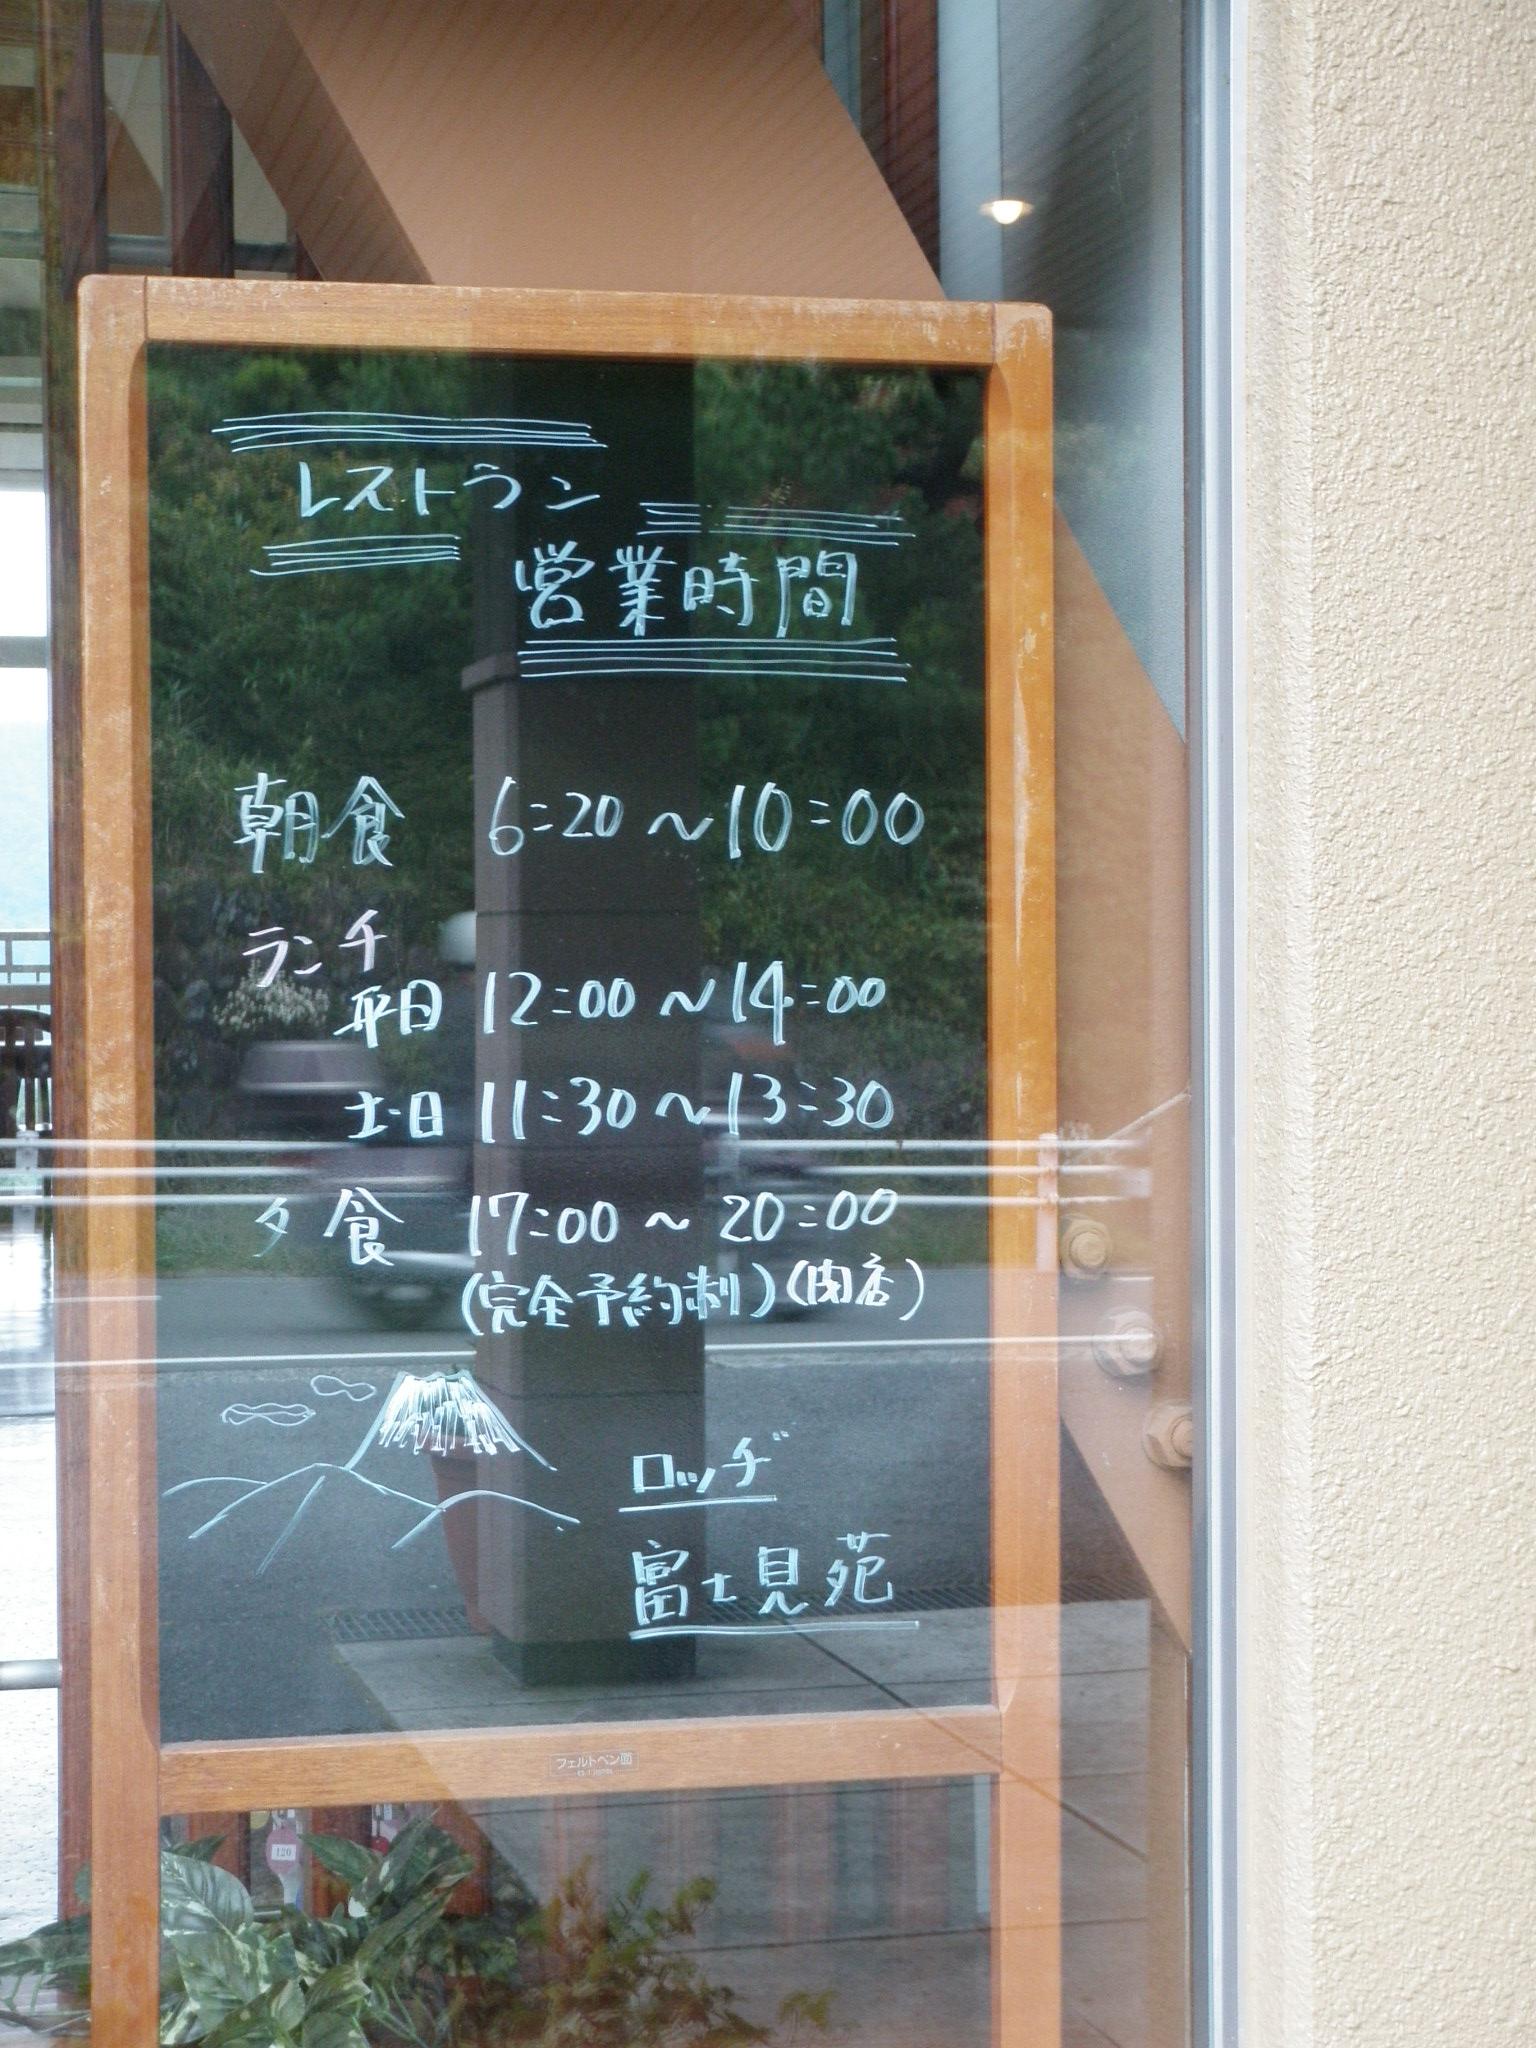 レストラン
営業時間
朝食 6:20～10:00
ランチ
平日 12:00～14:00
土・日 11:30～13:30
夕食 17:00～20:00
(完全予約制)(閉店)
ロッヂ
富士見苑
フェルトペン
120